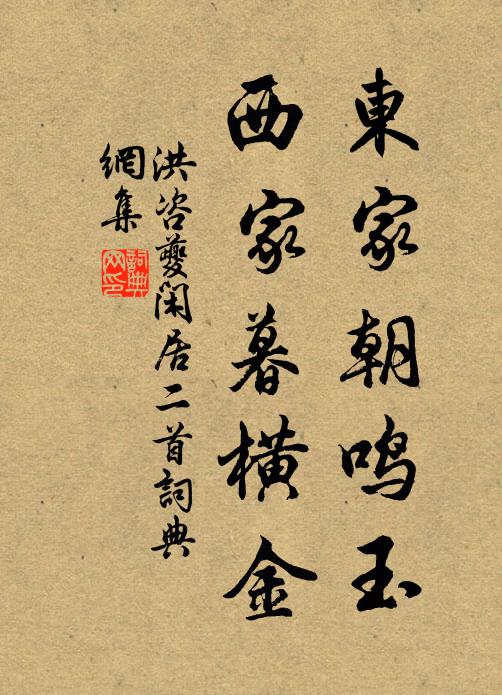 東家朝鳴玉
西家暮橫金
洪咨夔閑居二首詞典
網集
詞典
网印